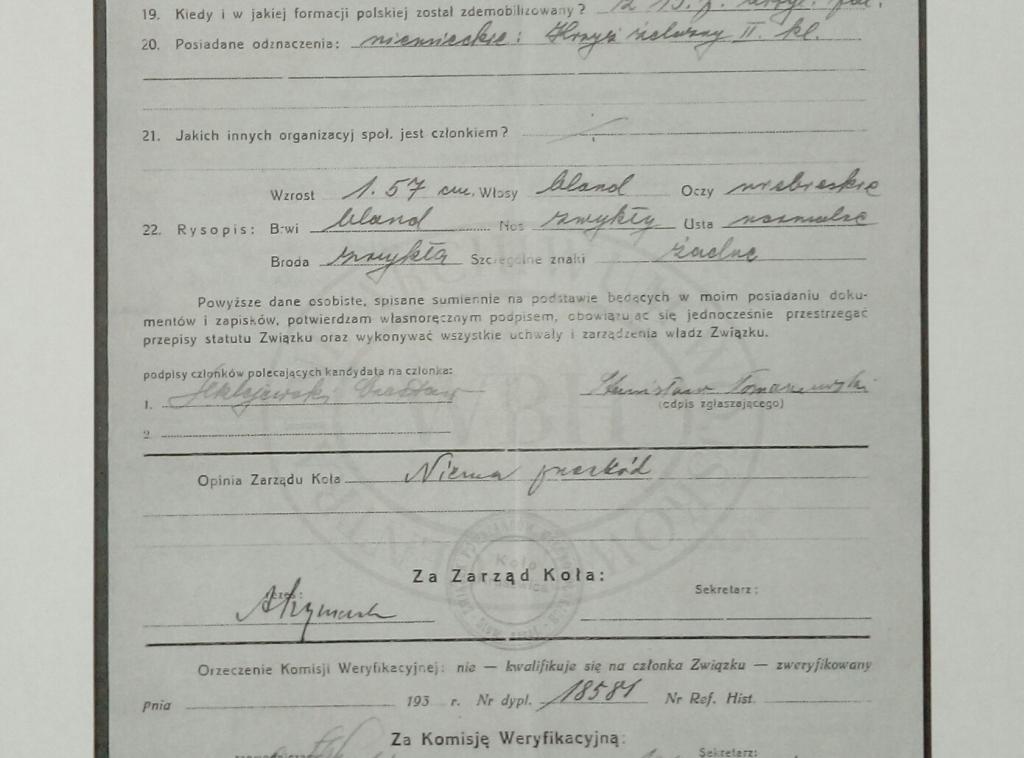 19. Kiedy i w jakiej formacji polskiej został zdemobilizowany?
20. Posiadane odznaczenia: niemieckie: Krzyż żelazny II. kl.
21. Jakich innych organizacyj społ. jest członkiem?
Wzrost 1.57 cm. Włosy bland Oczy niebieskie
22. Rysopis: Brwi bland Nos zwykły Usta normalne
Broda zwykła Szczególne znaki żadne
Powyższe dane osobiste, spisane sumiennie na podstawie będących w moim posiadaniu doku-
mentów i zapisków, potwierdzam własnoręcznym podpisem, obowiązując się jednocześnie przestrzegać
przepisy statutu Związku oraz wykonywać wszystkie uchwały i zarządzenia władz Związku.
podpisy członków polecających kandydata na członka:
1. Stanisław Tomaszewski
(odpis zgłaszającego)
2.
Opinia Zarządu Koła Niema przeszkód
Za Zarząd Koła:
Sekretarz:
Orzeczenie Komisji Weryfikacyjnej: nie — kwalifikuje się na członka Związku — zweryfikowany
Dnia 193 r. Nr dypl. 18581 Nr Ref. Hist.
Za Komisję Weryfikacyjną:
Sekretarz: